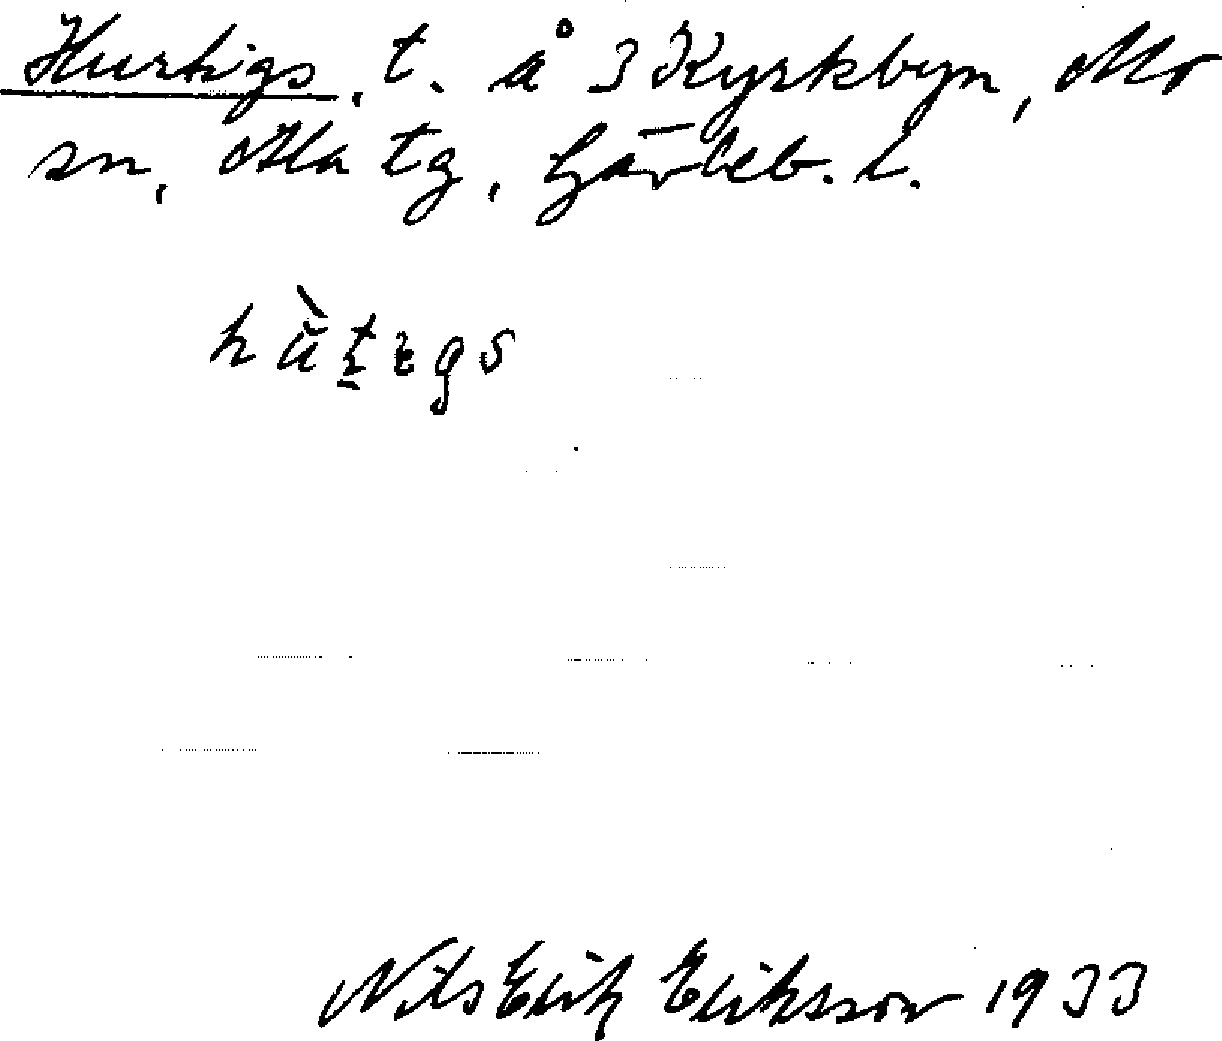 Hurtigs, t. å 3 Kyrkbyn, Mo
sn, Ala tg, Gävleb. l.
Nils Erik Eriksson 1933